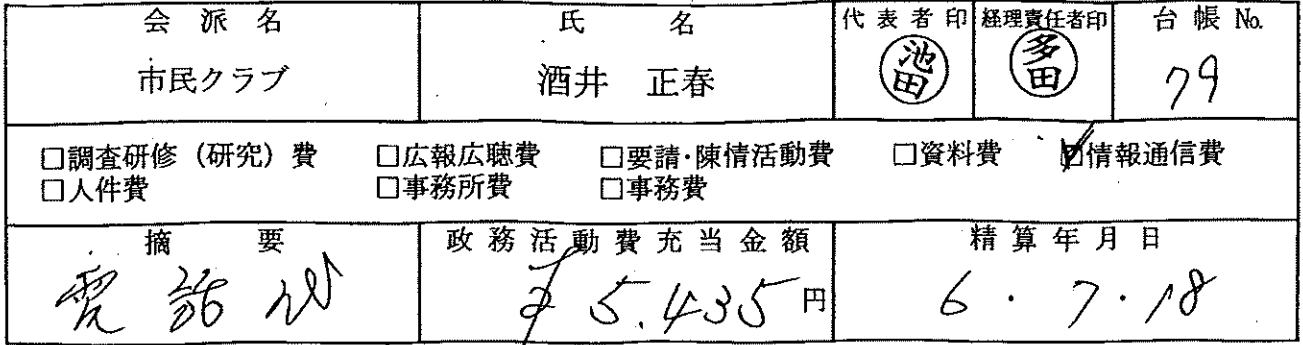 会派名 氏名 代表者印 経理責任者印 台帳No.
市民クラブ 酒井 正春 池田 多田 79
□調査研修（研究）費 □広報広聴費 □要請・陳情活動費 □資料費 ☑情報通信費
□人件費 □事務所費 □事務費
摘要 政務活動費充当金額 精算年月日
電話代 ¥5.435円 6.7.18